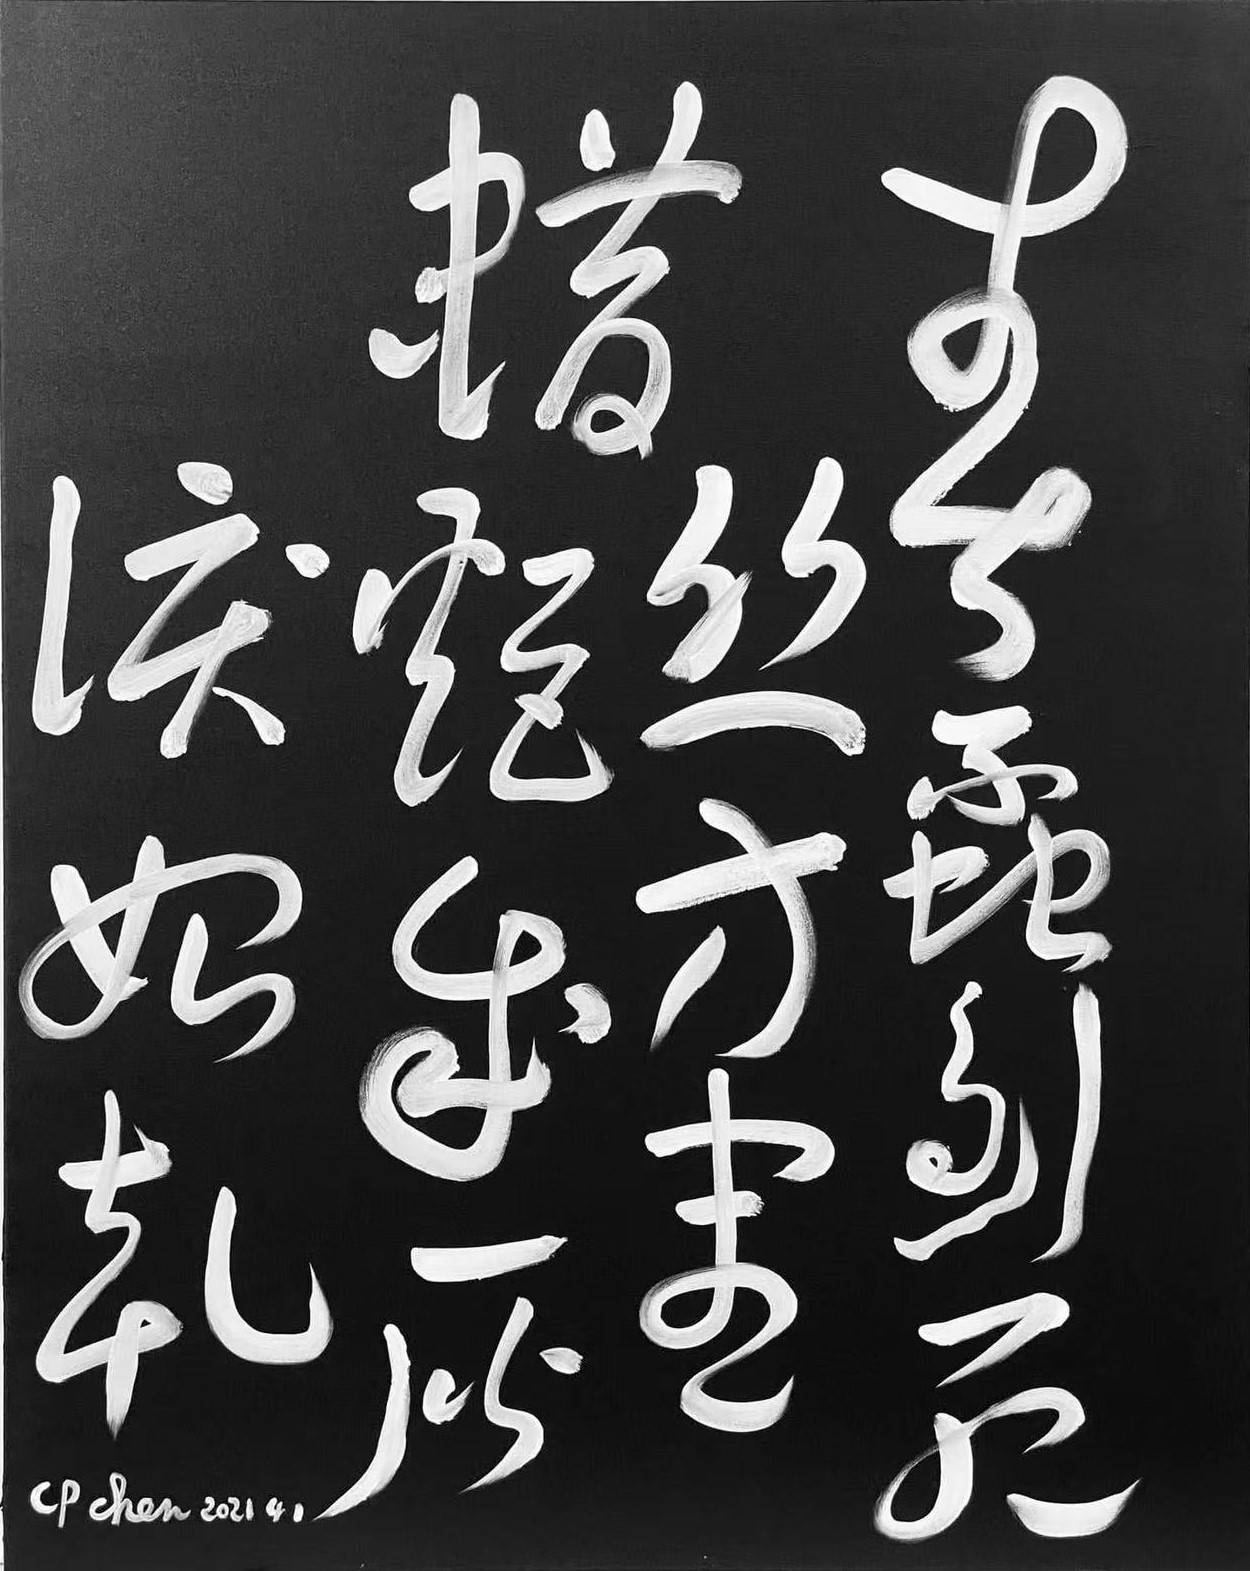 春蠶到死
丝方盡
蠟炬成灰
淚始乾
CP chen 2021 4 1